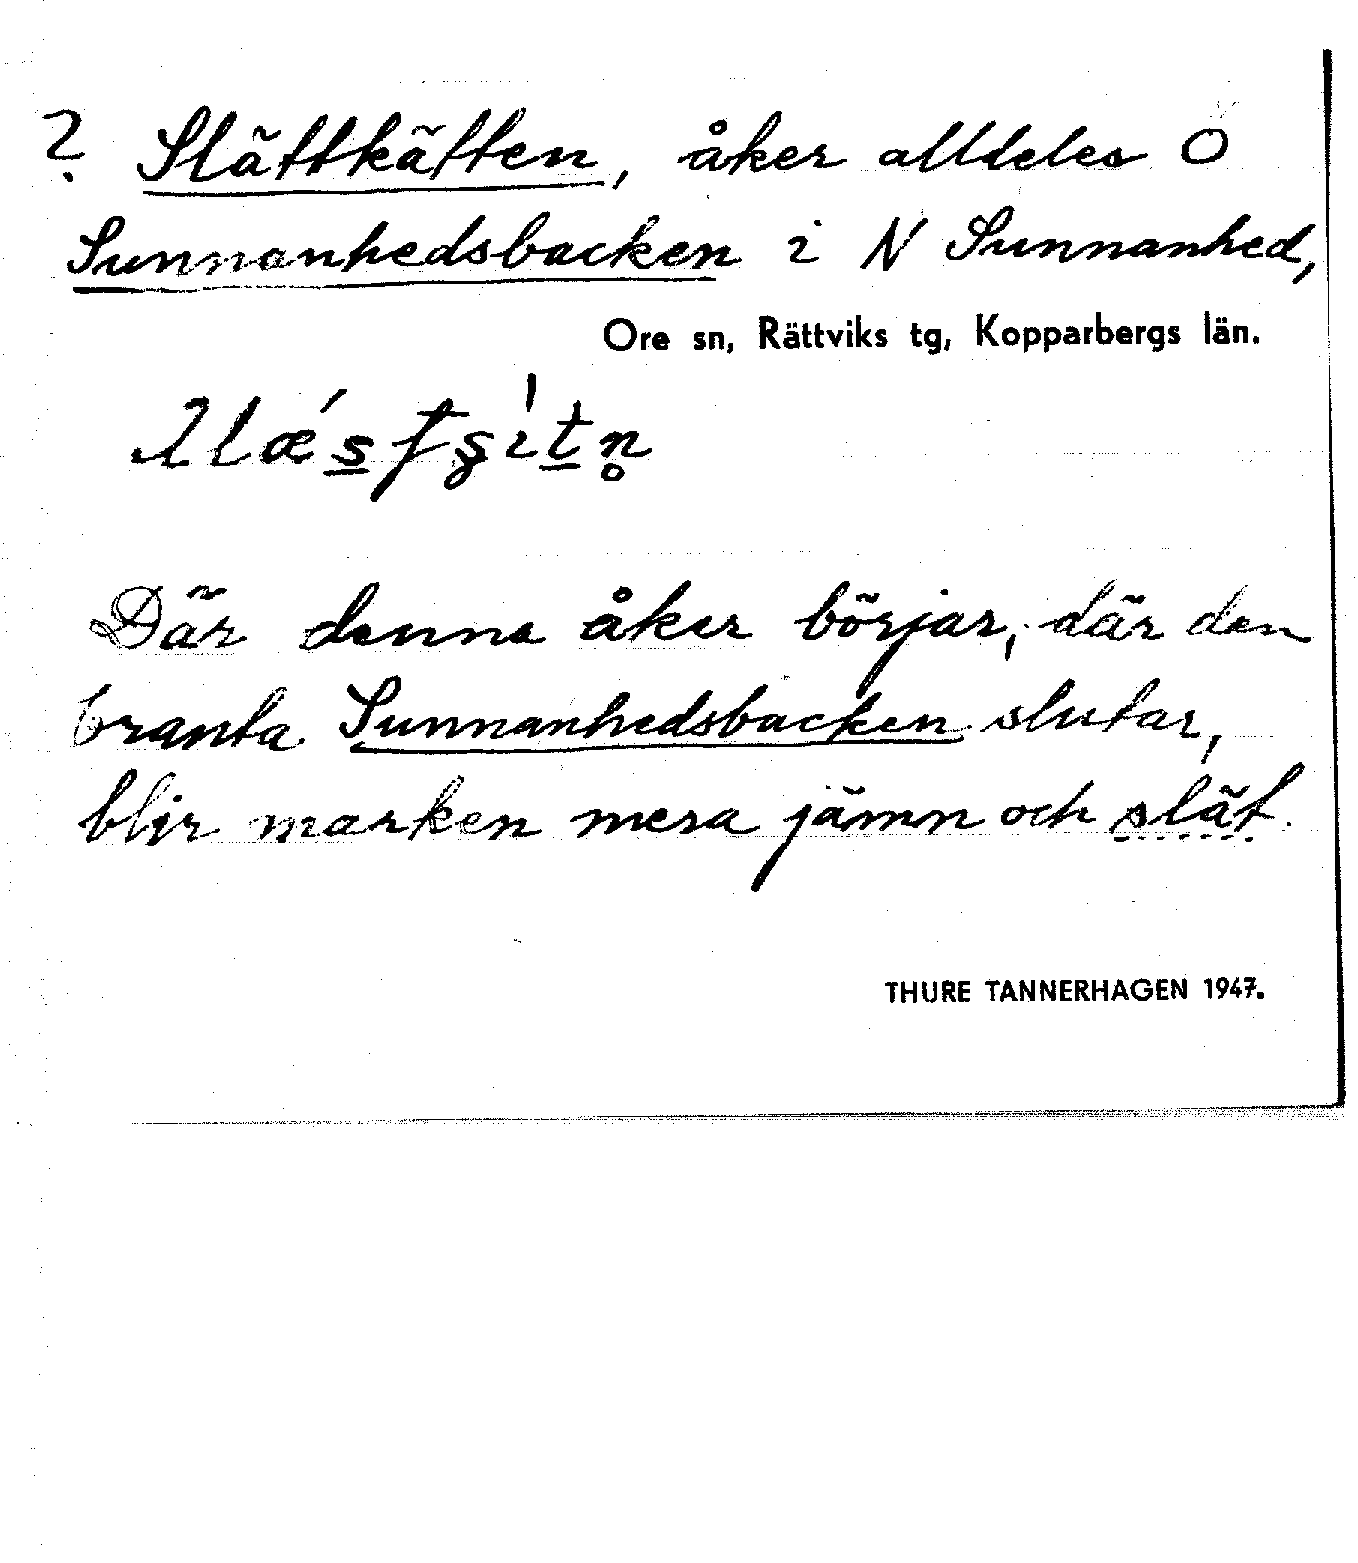 ? Slättkätten, åker alldeles Ö
Sunnanhedsbacken i N Sunnanhed,
Ore sn, Rättviks tg, Kopparbergs län.
Där denna åker börjar, där den
branta Sunnanhedsbacken slutar,
blir marken mera jämn och slät.
THURE TANNERHAGEN 1947.